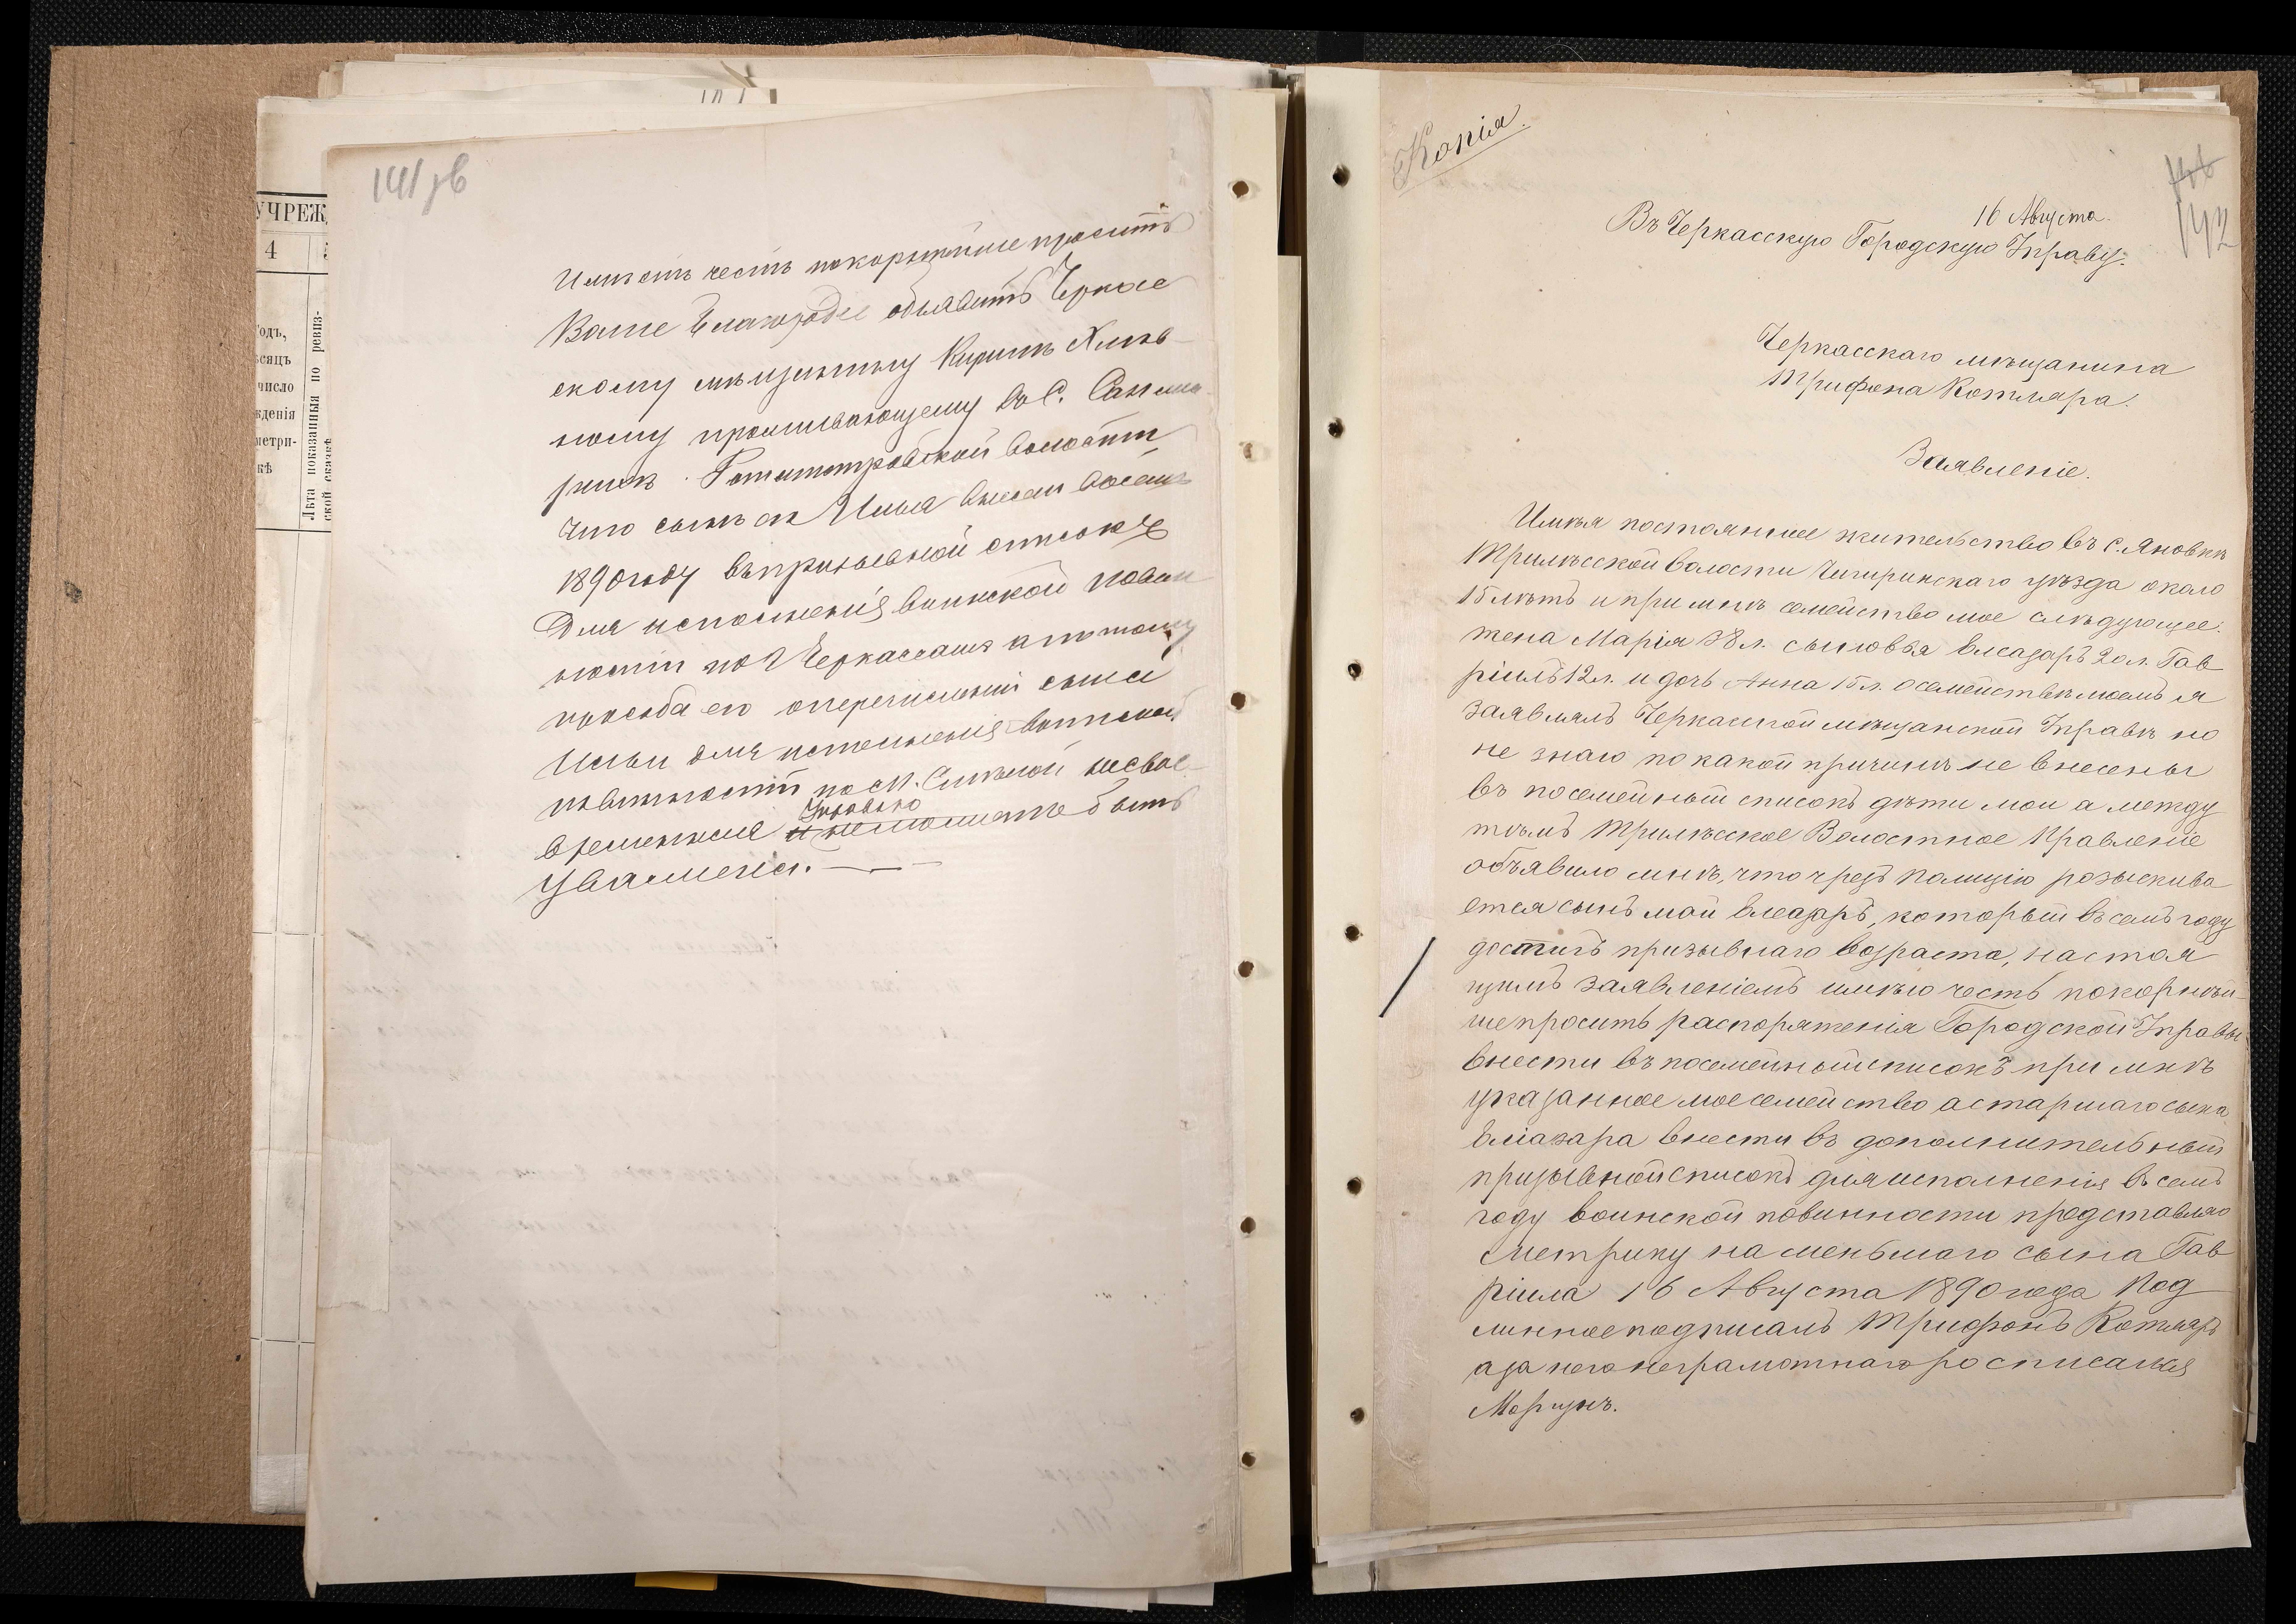 141 зв
УЧРЕЖ
4
одъ,
сяцъ
число
жденія
метри-
кѣ
Лѣта показанныя по ревиз-
ской сказкѣ
Имѣетъ честь покорнѣйше просить
Ваше Благородіе объявить Черкас
скому мѣщанину Кириллу
ному проживающему въ С.
Ротмистровской волости
что сынъ его Илья внесенъ въ семъ
1890 году въ призывной списокъ
для исполненія воинской повин
ности по г Черкассамъ а потому
просьба его о перечисленіи сына
Ильи для исполненія воинской
повинности по м. Смѣлой несвое-
временная Управою
и не можетъ быть
уважена.
Копія.
142
16 Августа.
Въ Черкасскую Городскую Управу.
Черкасскаго мѣщанина
Трифона Котляра.
Заявленіе.
Имѣя постоянное жительство въ с. Яновкѣ
Трилѣсской волости Чигиринскаго уѣзда около
15 лѣтъ и при мнѣ семейство мое слѣдующее:
жена Марія 38 л. сыновья Елеазаръ 20 л. Гав
ріилъ 12 л. и дочь Анна 15 л. о семействѣ моемъ я
заявлялъ Черкасской мѣщанской Управѣ но
не знаю по какой причинѣ не внесены
въ посемейный списокъ дѣти мои а между
тѣмъ Трилѣсское Волостное Правленіе
объявило мнѣ, что чрезъ полицію розыскива
ется сынъ мой Елеазаръ, который въ семъ году
достигъ призывнаго возраста, настоя
щимъ заявленіемъ имѣю честь покорнѣй-
ше просить распоряженія Городской Управы
внести въ посемейный списокъ при мнѣ
указанное мое семейство а старшаго сына
Еліазара внести въ дополнительный
призывной списокъ для исполненія въ семъ
году воинской повинности представляю
метрику на меньшаго сына Гав
ріила 16 Августа 1890 года Под
линное подписалъ Трифонъ Котляръ
а за него неграмотнаго росписался